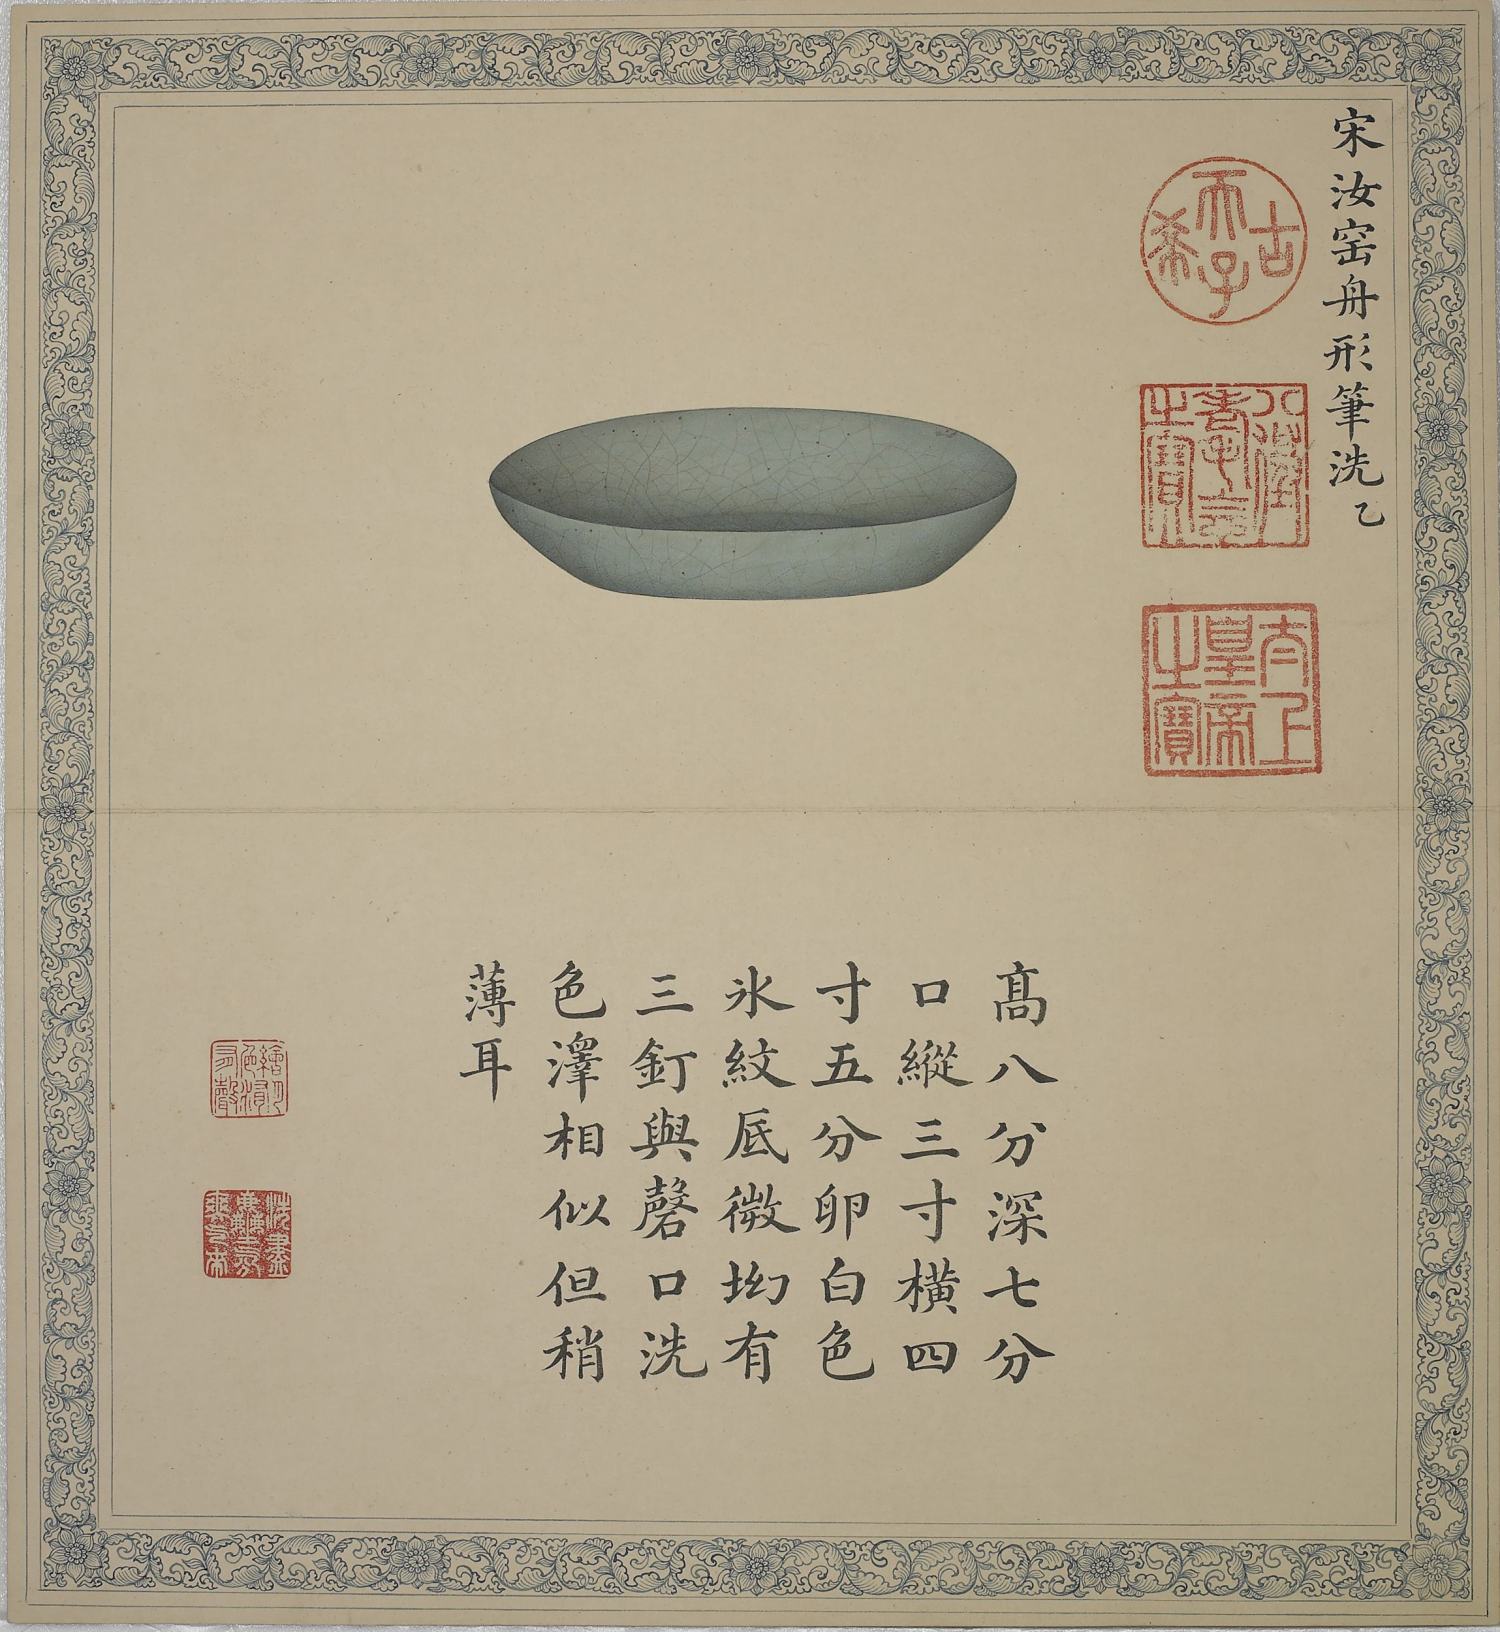 宋汝窑舟形筆洗乙
古希天子
八徵耄念之寶
太上皇帝之寶
高八分深七分
口縱三寸橫四
寸五分卵白色
氷紋底微坳有
三釘與磬口洗
色澤相似但稍
薄耳
洗盡塵氛爽氣來